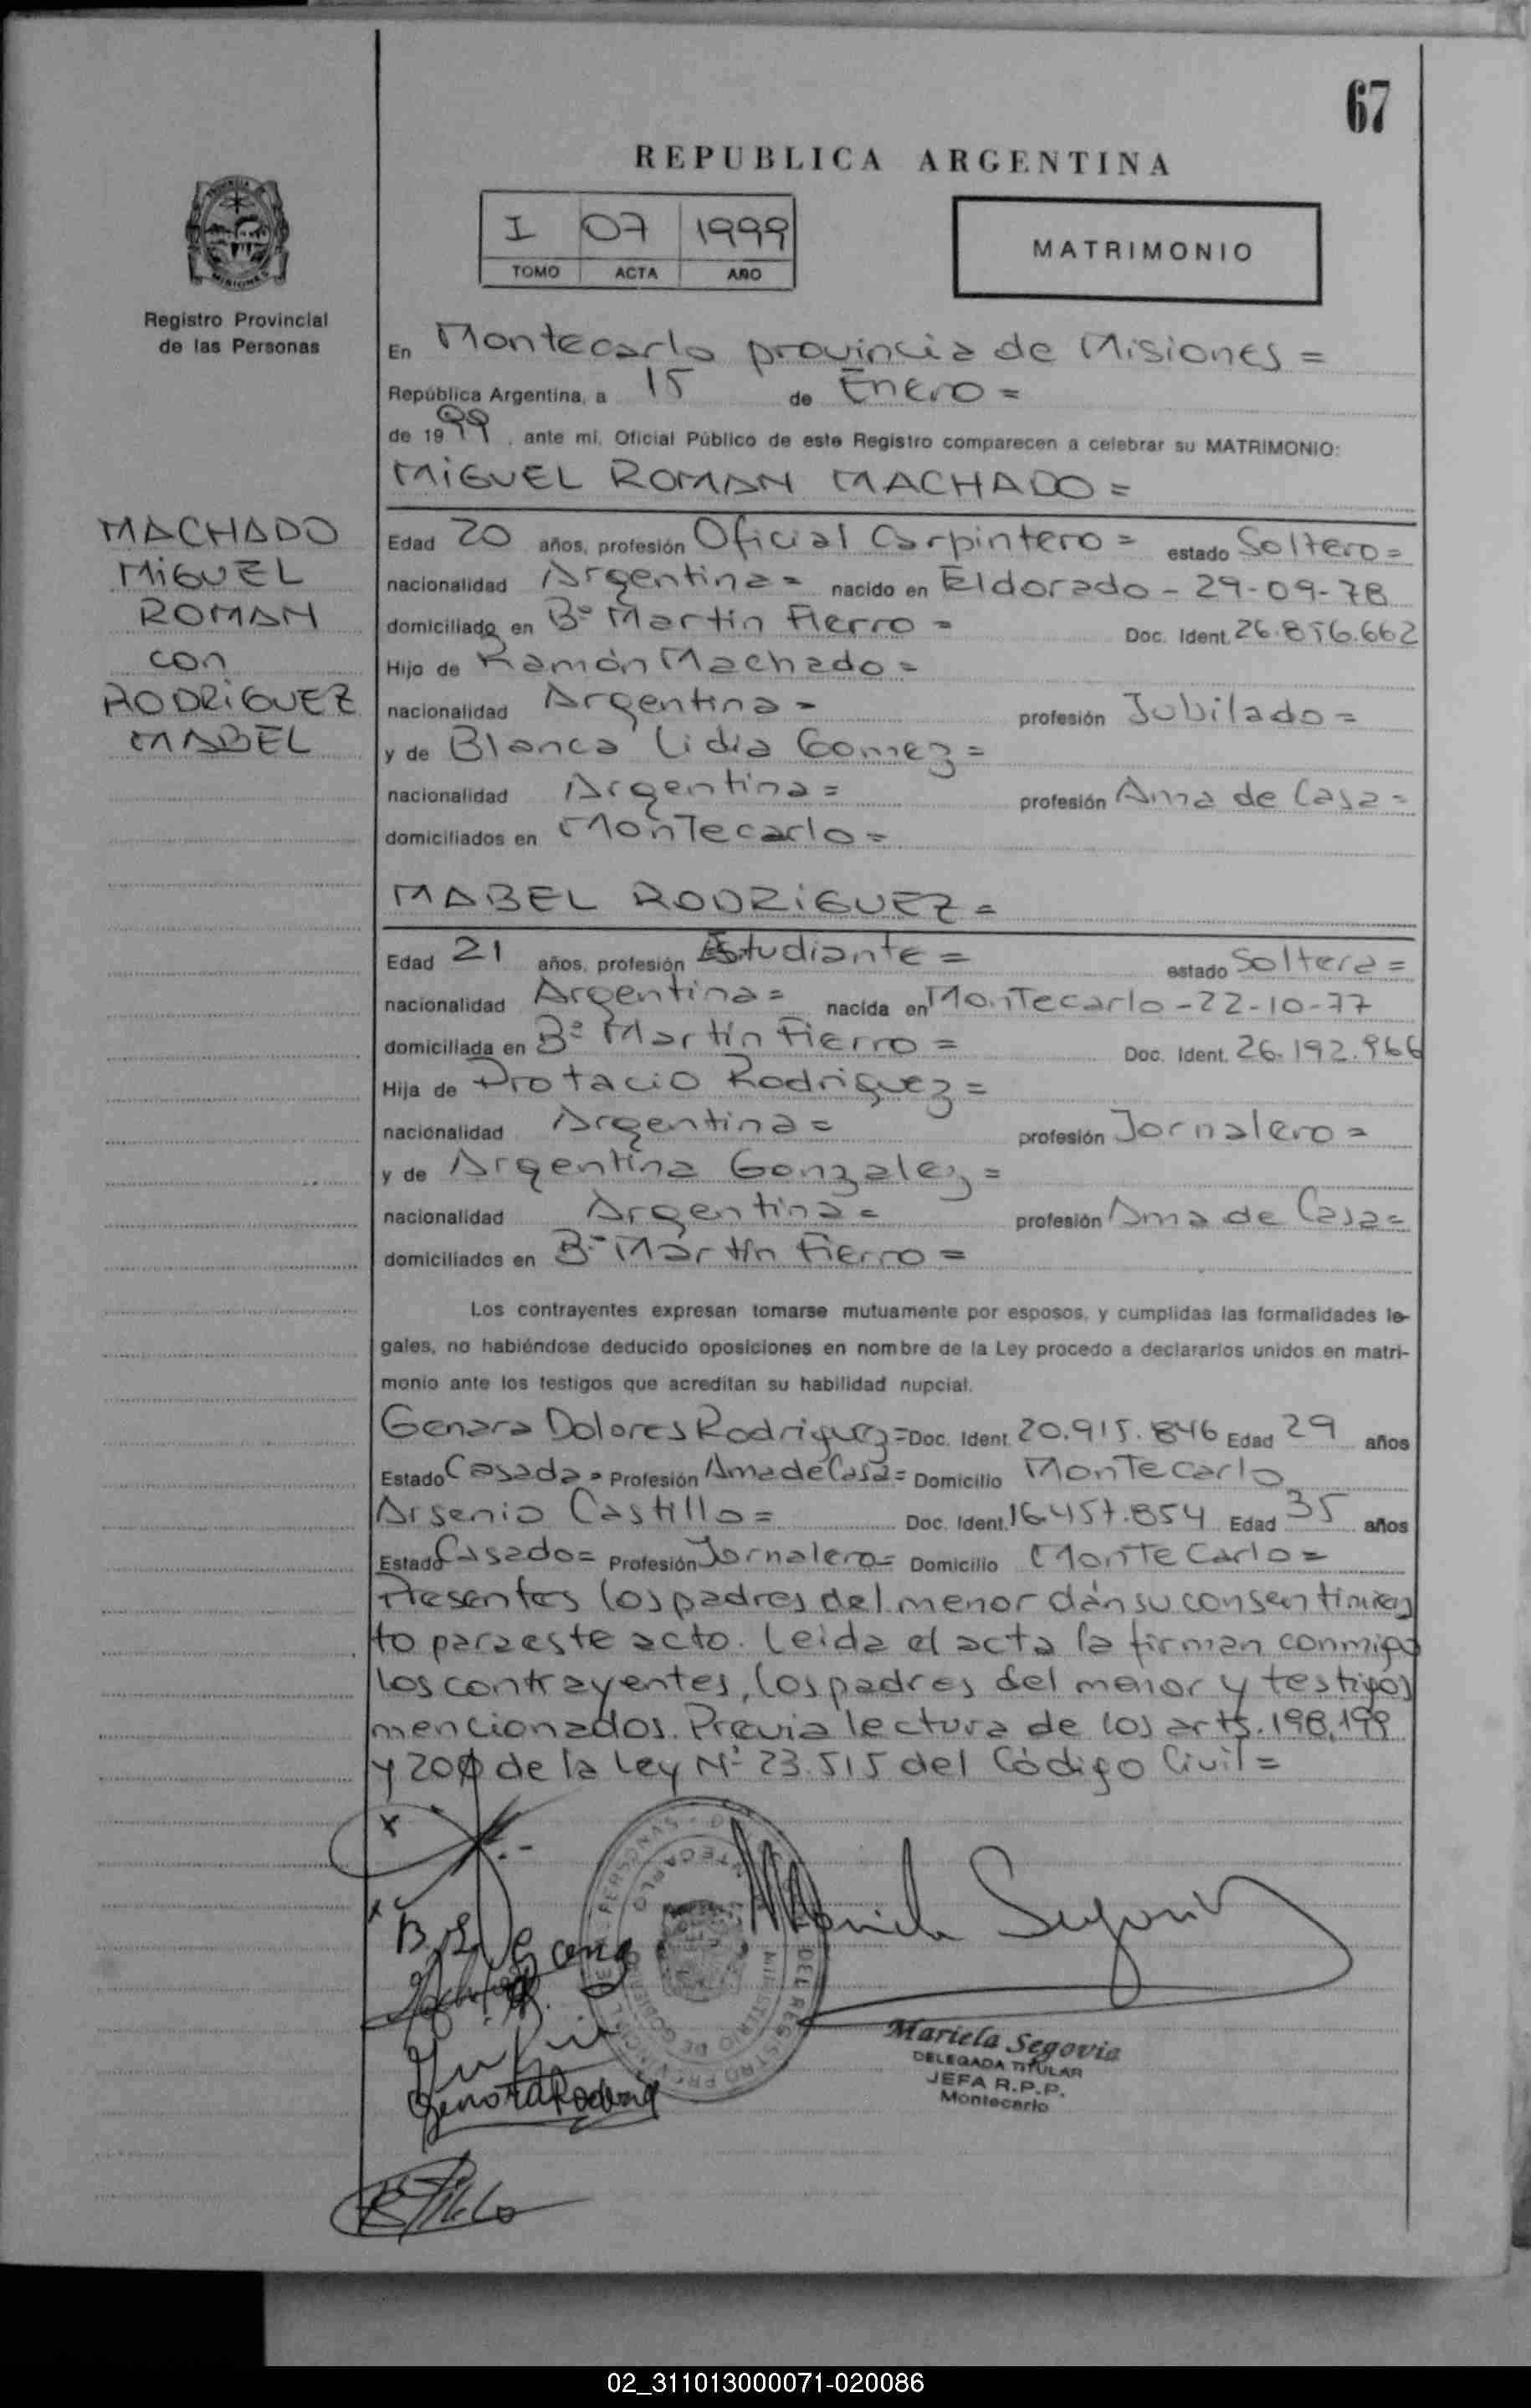 67
REPUBLICA ARGENTINA
I 07 1999
TOMO ACTA AÑO
MATRIMONIO
Registro Provincial
de las Personas
En Montecarlo provincia de Misiones =
República Argentina, a 15 de Enero =
de 1999, ante mí, Oficial Público de este Registro comparecen a celebrar su MATRIMONIO:
MIGUEL ROMAN MACHADO =
MACHADO
MIGUEL
ROMAN
con
RODRIGUEZ
MABEL
Edad 20 años, profesión Oficial Carpintero = estado Soltero =
nacionalidad Argentina = nacido en Eldorado - 29-09-78
domiciliado en Bº Martín Fierro = Doc. Ident. 26.856.662
Hijo de Ramón Machado =
nacionalidad Argentina = profesión Jubilado =
y de Blanca Lidia Gomez =
nacionalidad Argentina = profesión Ama de Casa =
domiciliados en Montecarlo =
MABEL RODRIGUEZ =
Edad 21 años, profesión Estudiante = estado Soltera =
nacionalidad Argentina = nacida en Montecarlo - 22-10-77
domiciliada en Bº Martín Fierro = Doc. Ident. 26.192.966
Hija de Protacio Rodriguez =
nacionalidad Argentina = profesión Jornalero =
y de Argentina Gonzalez =
nacionalidad Argentina = profesión Ama de Casa =
domiciliados en Bº Martín Fierro =
Los contrayentes expresan tomarse mutuamente por esposos, y cumplidas las formalidades le-
gales, no habiéndose deducido oposiciones en nombre de la Ley procedo a declararlos unidos en matri-
monio ante los testigos que acreditan su habilidad nupcial.
Genara Dolores Rodriguez = Doc. Ident. 20.915.846 Edad 29 años
Estado Casada = Profesión Ama de Casa = Domicilio Montecarlo
Arsenio Castillo = Doc. Ident. 16.457.854 Edad 35 años
Estado Casado = Profesión Jornalero = Domicilio Montecarlo =
Presentes los padres del menor dán su consentimien
to para este acto. Leida el acta la firman conmigo
los contrayentes, los padres del menor y testigos
mencionados. Previa lectura de los arts. 198, 199
y 200 de la Ley Nº 23.515 del Código Civil =
Mariela Segovia
DELEGADA TITULAR
JEFA R.P.P.
Montecarlo
02_311013000071-020086